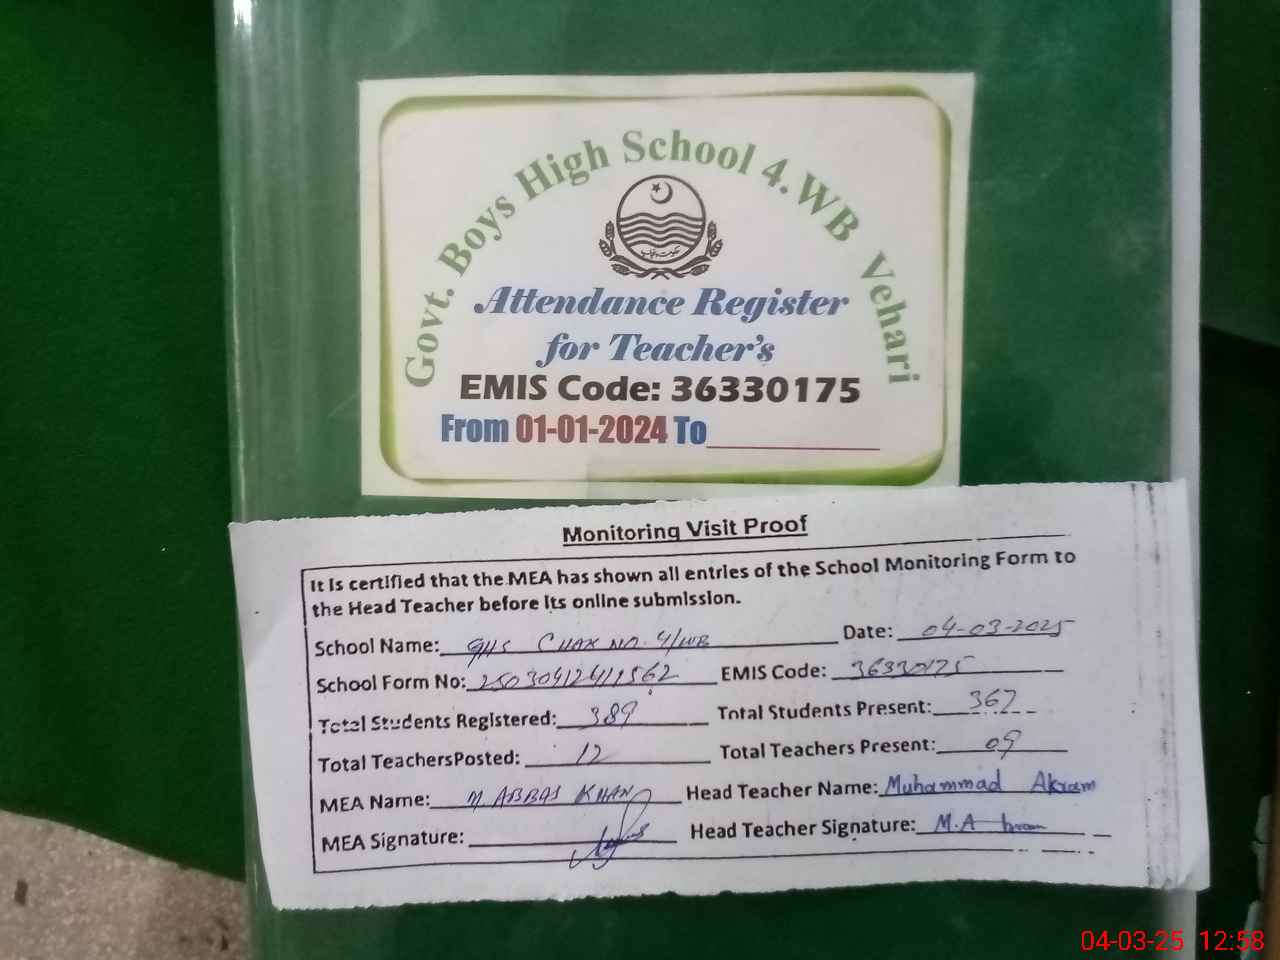 Govt. Boys High School 4.WB Vehari
Attendance Register
for Teacher's
EMIS Code: 36330175
From 01-01-2024 To
Monitoring Visit Proof
It is certified that the MEA has shown all entries of the School Monitoring Form to
the Head Teacher before its online submission.
School Name: GHS CHAK NO. 4/WB Date: 04-03-2025
School Form No: EMIS Code: 36330175
Total Students Registered: 389 Total Students Present: 367
Total TeachersPosted: 12 Total Teachers Present: 09
MEA Name: M ABBAS KHAN Head Teacher Name: Muhammad Akram
MEA Signature: Head Teacher Signature: M.A
04-03-25 12:58